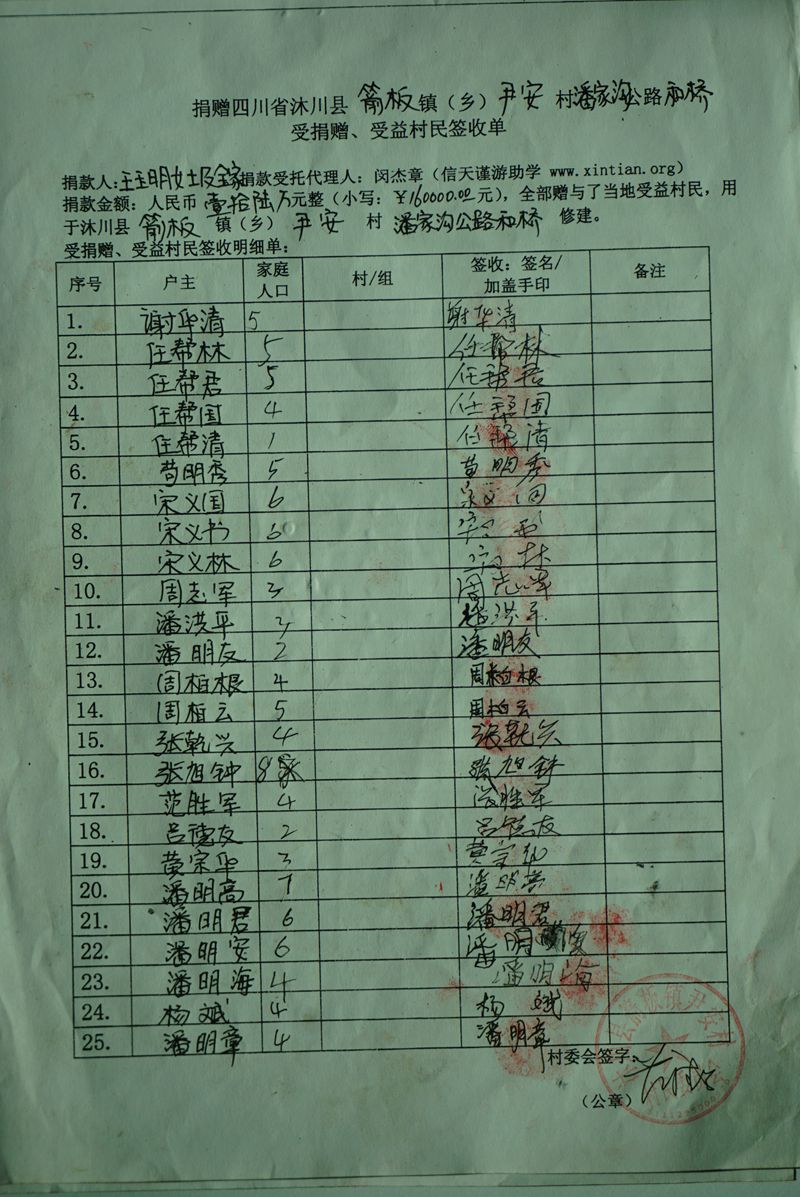 捐赠四川省沐川县 箭板 镇（乡）尹安 村潘家沟公路和桥
受捐赠、受益村民签收单
捐款人: 捐款受托代理人：闵杰章（信天谨游助学 www.xintian.org）
捐款金额：人民币 壹拾陆万元整（小写：￥160000.00元），全部赠与了当地受益村民，用
于沐川县 箭板 镇（乡） 尹安 村 潘家沟公路和桥 修建。
受捐赠、受益村民签收明细单：
序号 户主 家庭人口 村/组 签收：签名/加盖手印 备注
1. 谢华清 5 谢华清
2. 任帮林 5 任帮林
3. 任帮君 5 任帮君
4. 任帮国 4 任帮国
5. 任帮清 1 任帮清
6. 苟明秀 5 苟明秀
7. 宋义国 6 宋义国
8. 宋义书 6
9. 宋义林 6 林
10. 周志军 3 周志军
11. 潘洪平 3 潘洪平
12. 潘明友 2 潘明友
13. 周柏根 4 周柏根
14. 周柏云 5 周柏云
15. 张乾兴 4 张乾兴
16. 张旭钟 张旭钟
17. 范胜军 4 范胜军
18. 吕德友 2 吕德友
19. 黄宗华 3 黄宗华
20. 潘明高 7 潘明高
21. 潘明君 6 潘明君
22. 潘明安 6 潘明安
23. 潘明海 4 潘明海
24. 杨斌 4 杨斌
25. 潘明章 4 潘明章
村委会签字：
（公章）